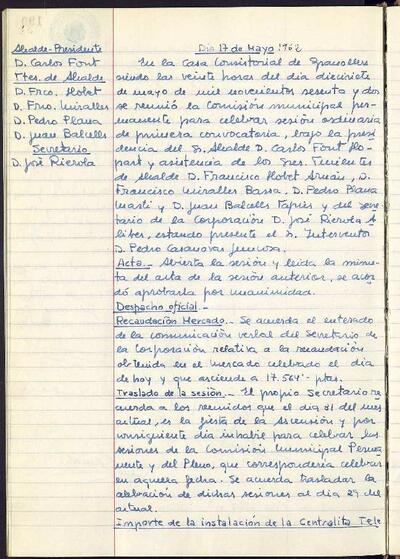 Alcalde-Presidente
D. Carlos Font
Ttes. de Alcalde
D. Frco. Llobet
D. Frco. Miralles
D. Pedro Plana
D. Juan Balcells
Secretario
D. José Rierola
Dia 17 de Mayo 1962
En la Casa Consistorial de Granollers
siendo las veinte horas del día diecisiete
de mayo de mil novecientos sesenta y dos
se reunió la Comisión municipal per-
manente para celebrar sesión ordinaria
de primera convocatoria, bajo la presi
dencia del Sr. Alcalde D. Carlos Font Llo-
part y asistencia de los Sres. Tenientes
de Alcalde D. Francisco Llobet Arnán, D.
Francisco Miralles Bassa, D. Pedro Plana
Martí y D. Juan Balcells Tapies y del Secre
tario de la Corporación D. José Rierola A
liber, estando presente el Sr. Interventor
D. Pedro Casanovas
Acta.- Abierta la sesión y leida la minu-
ta del acta de la sesión anterior, se acor
dó aprobarla por unanimidad.
Despacho oficial.-
Recaudación Mercado.- Se acuerda el enterado
de la comunicación verbal del Secretario de
la Corporación relativa a la recaudación
obtenida en el mercado celebrado el dia
de hoy y que asciende a 17.564'- ptas.
Traslado de la sesión.- El propio Secretario re
cuerda a los reunidos que el dia 31 del mes
actual, es la fiesta de la Ascensión y por
consiguiente dia inhabil para celebrar las
sesiones de la Comisión Municipal Perma
nente y del Pleno, que correspondería celebrar
en aquella fecha. Se acuerda trasladar la
celebración de dichas sesiones al dia 29 del
actual.
Importe de la instalación de la Centralita Tele